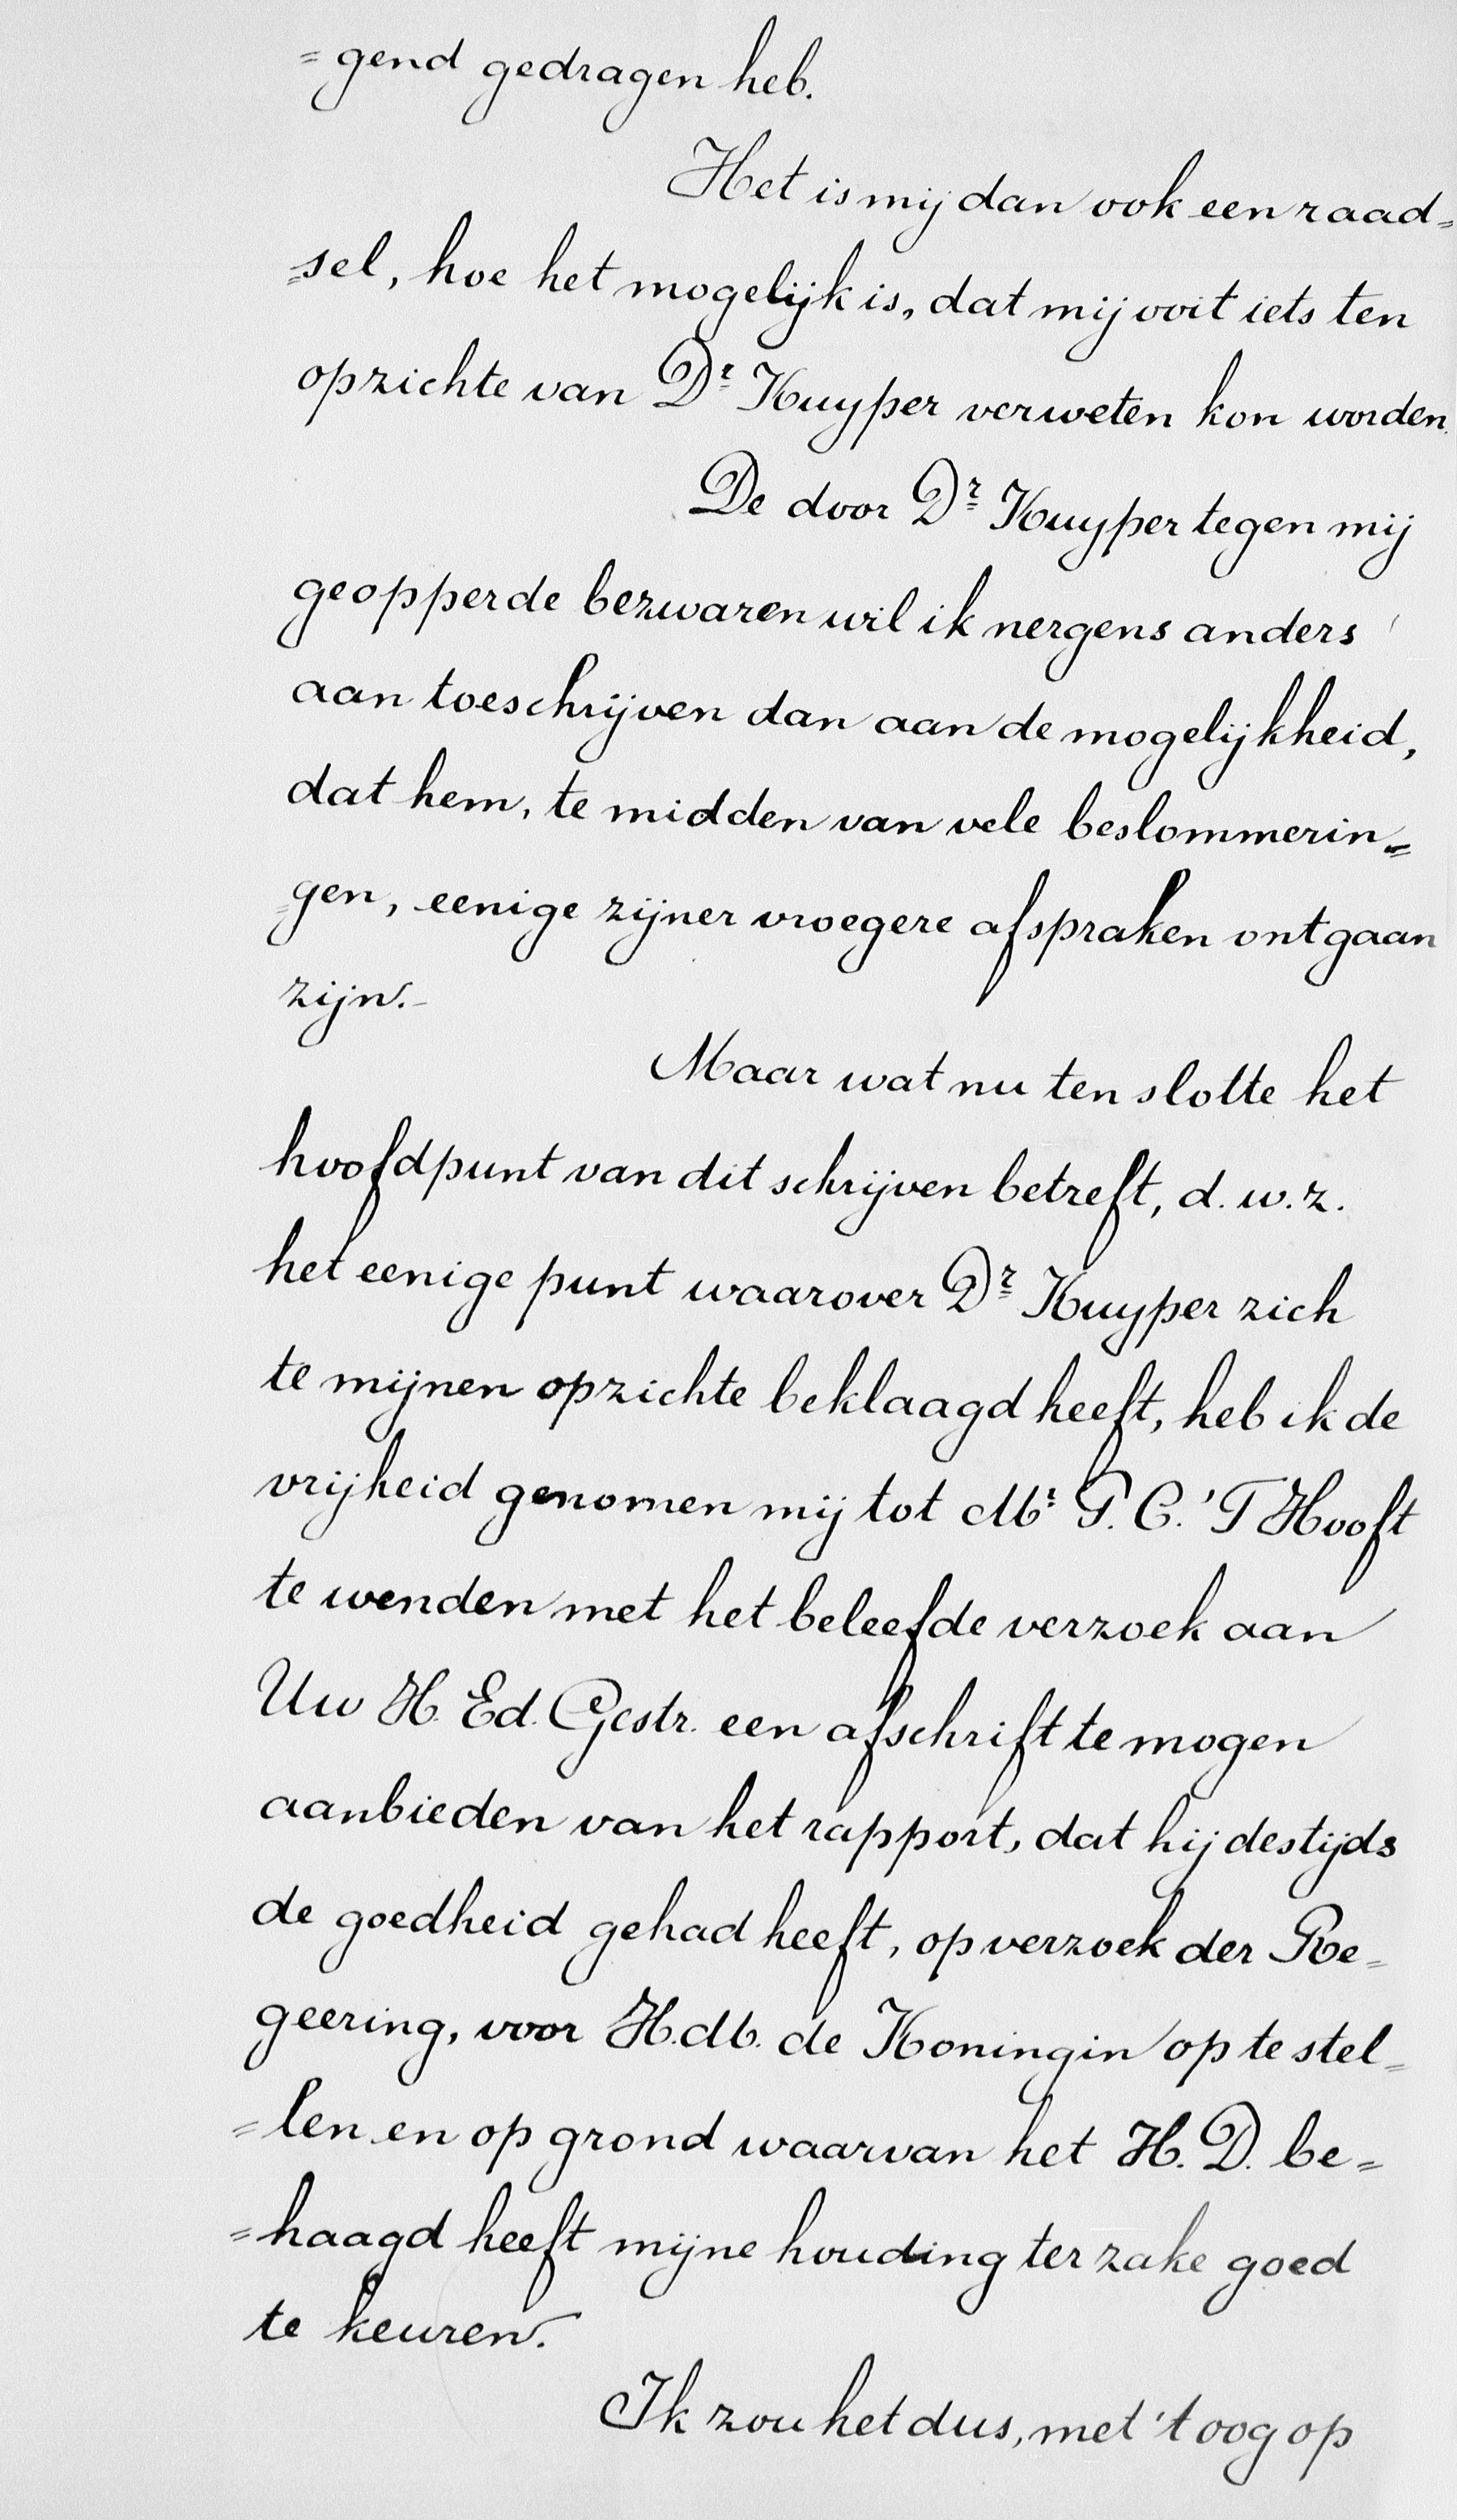 =gend gedragen heb.
Het is mij dan ook een raad=
=sel, hoe het mogelijk is, dat mij ooit iets ten
opzichte van Dr Kuyper verweten kon worden.
De door Dr Kuyper tegen mij
geopperde bezwaren wil ik nergens anders
aan toeschrijven dan aan de mogelijkheid,
dat hem, te midden van vele beslommerin=
=gen, eenige zijner vroegere afspraken ontgaan
zijn.-
Maar wat nu ten slotte het
hoofdpunt van dit schrijven betreft, d. w. z.
het eenige punt waarover Dr Kuyper zich
te mijnen opzichte beklaagd heeft, heb ik de
vrijheid genomen mij tot Mr P. C. 'T Hooft
te wenden met het beleefde verzoek aan
Uw H. Ed. Gestr. een afschrift te mogen
aanbieden van het rapport, dat hij destijds
de goedheid gehad heeft, op verzoek der Re=
geering, voor H.M. de Koningin op te stel=
=len en op grond waarvan het H. D. be=
=haagd heeft mijne houding ter zake goed
te keuren.
Ik zou het dus, met 't oog op